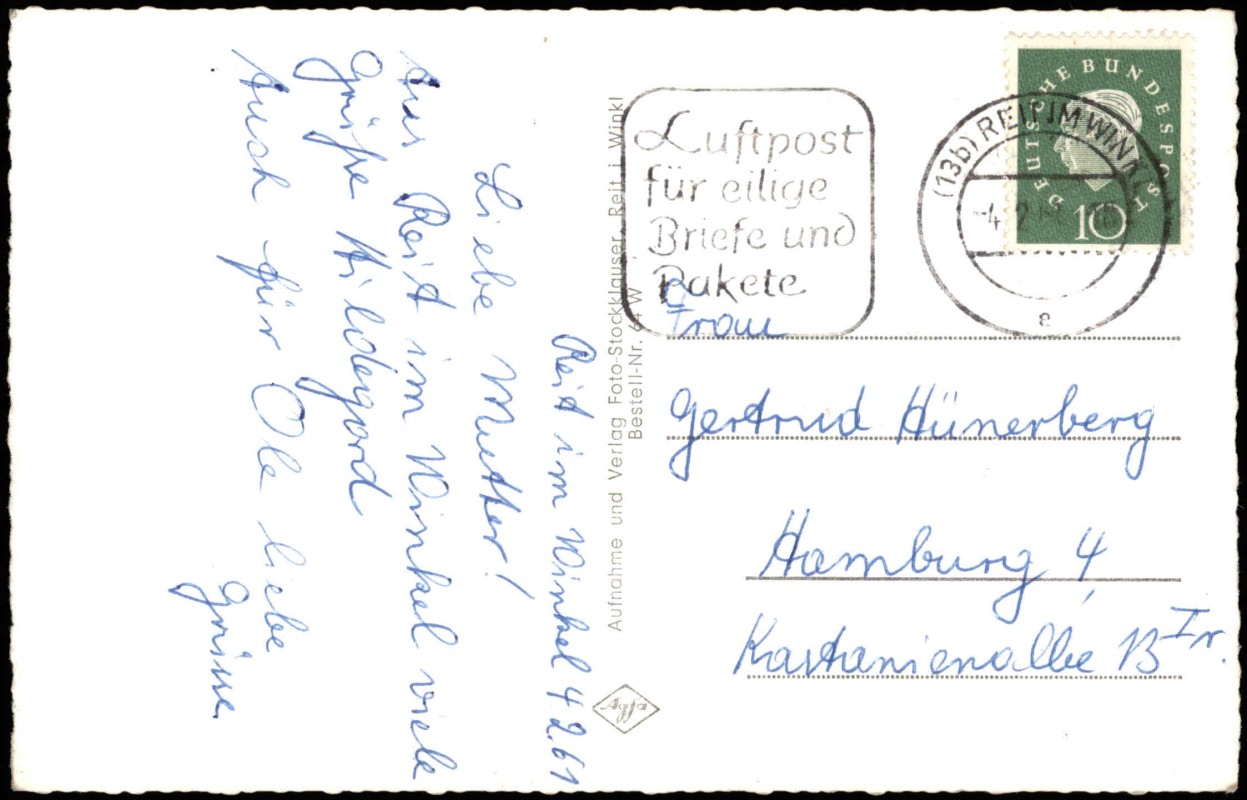 Reit im Winkel 4.2.61
Liebe Mutter!
Aus Reit im Winkel viele
Grüße Hildegard
Auch für Ole liebe
Grüsse
Aufnahme und Verlag Foto-Stockklauser, Reit i. Winkl
Bestell-Nr. 64 W
Agfa
Luftpost
für eilige
Briefe und
Pakete
DEUTSCHE BUNDESPOST
10
(13b) REIT IM WINKL
-4. 2. 61
e
Frau
Gertrud Hünerberg
Hamburg 4,
Kastanienallee 13 I r.